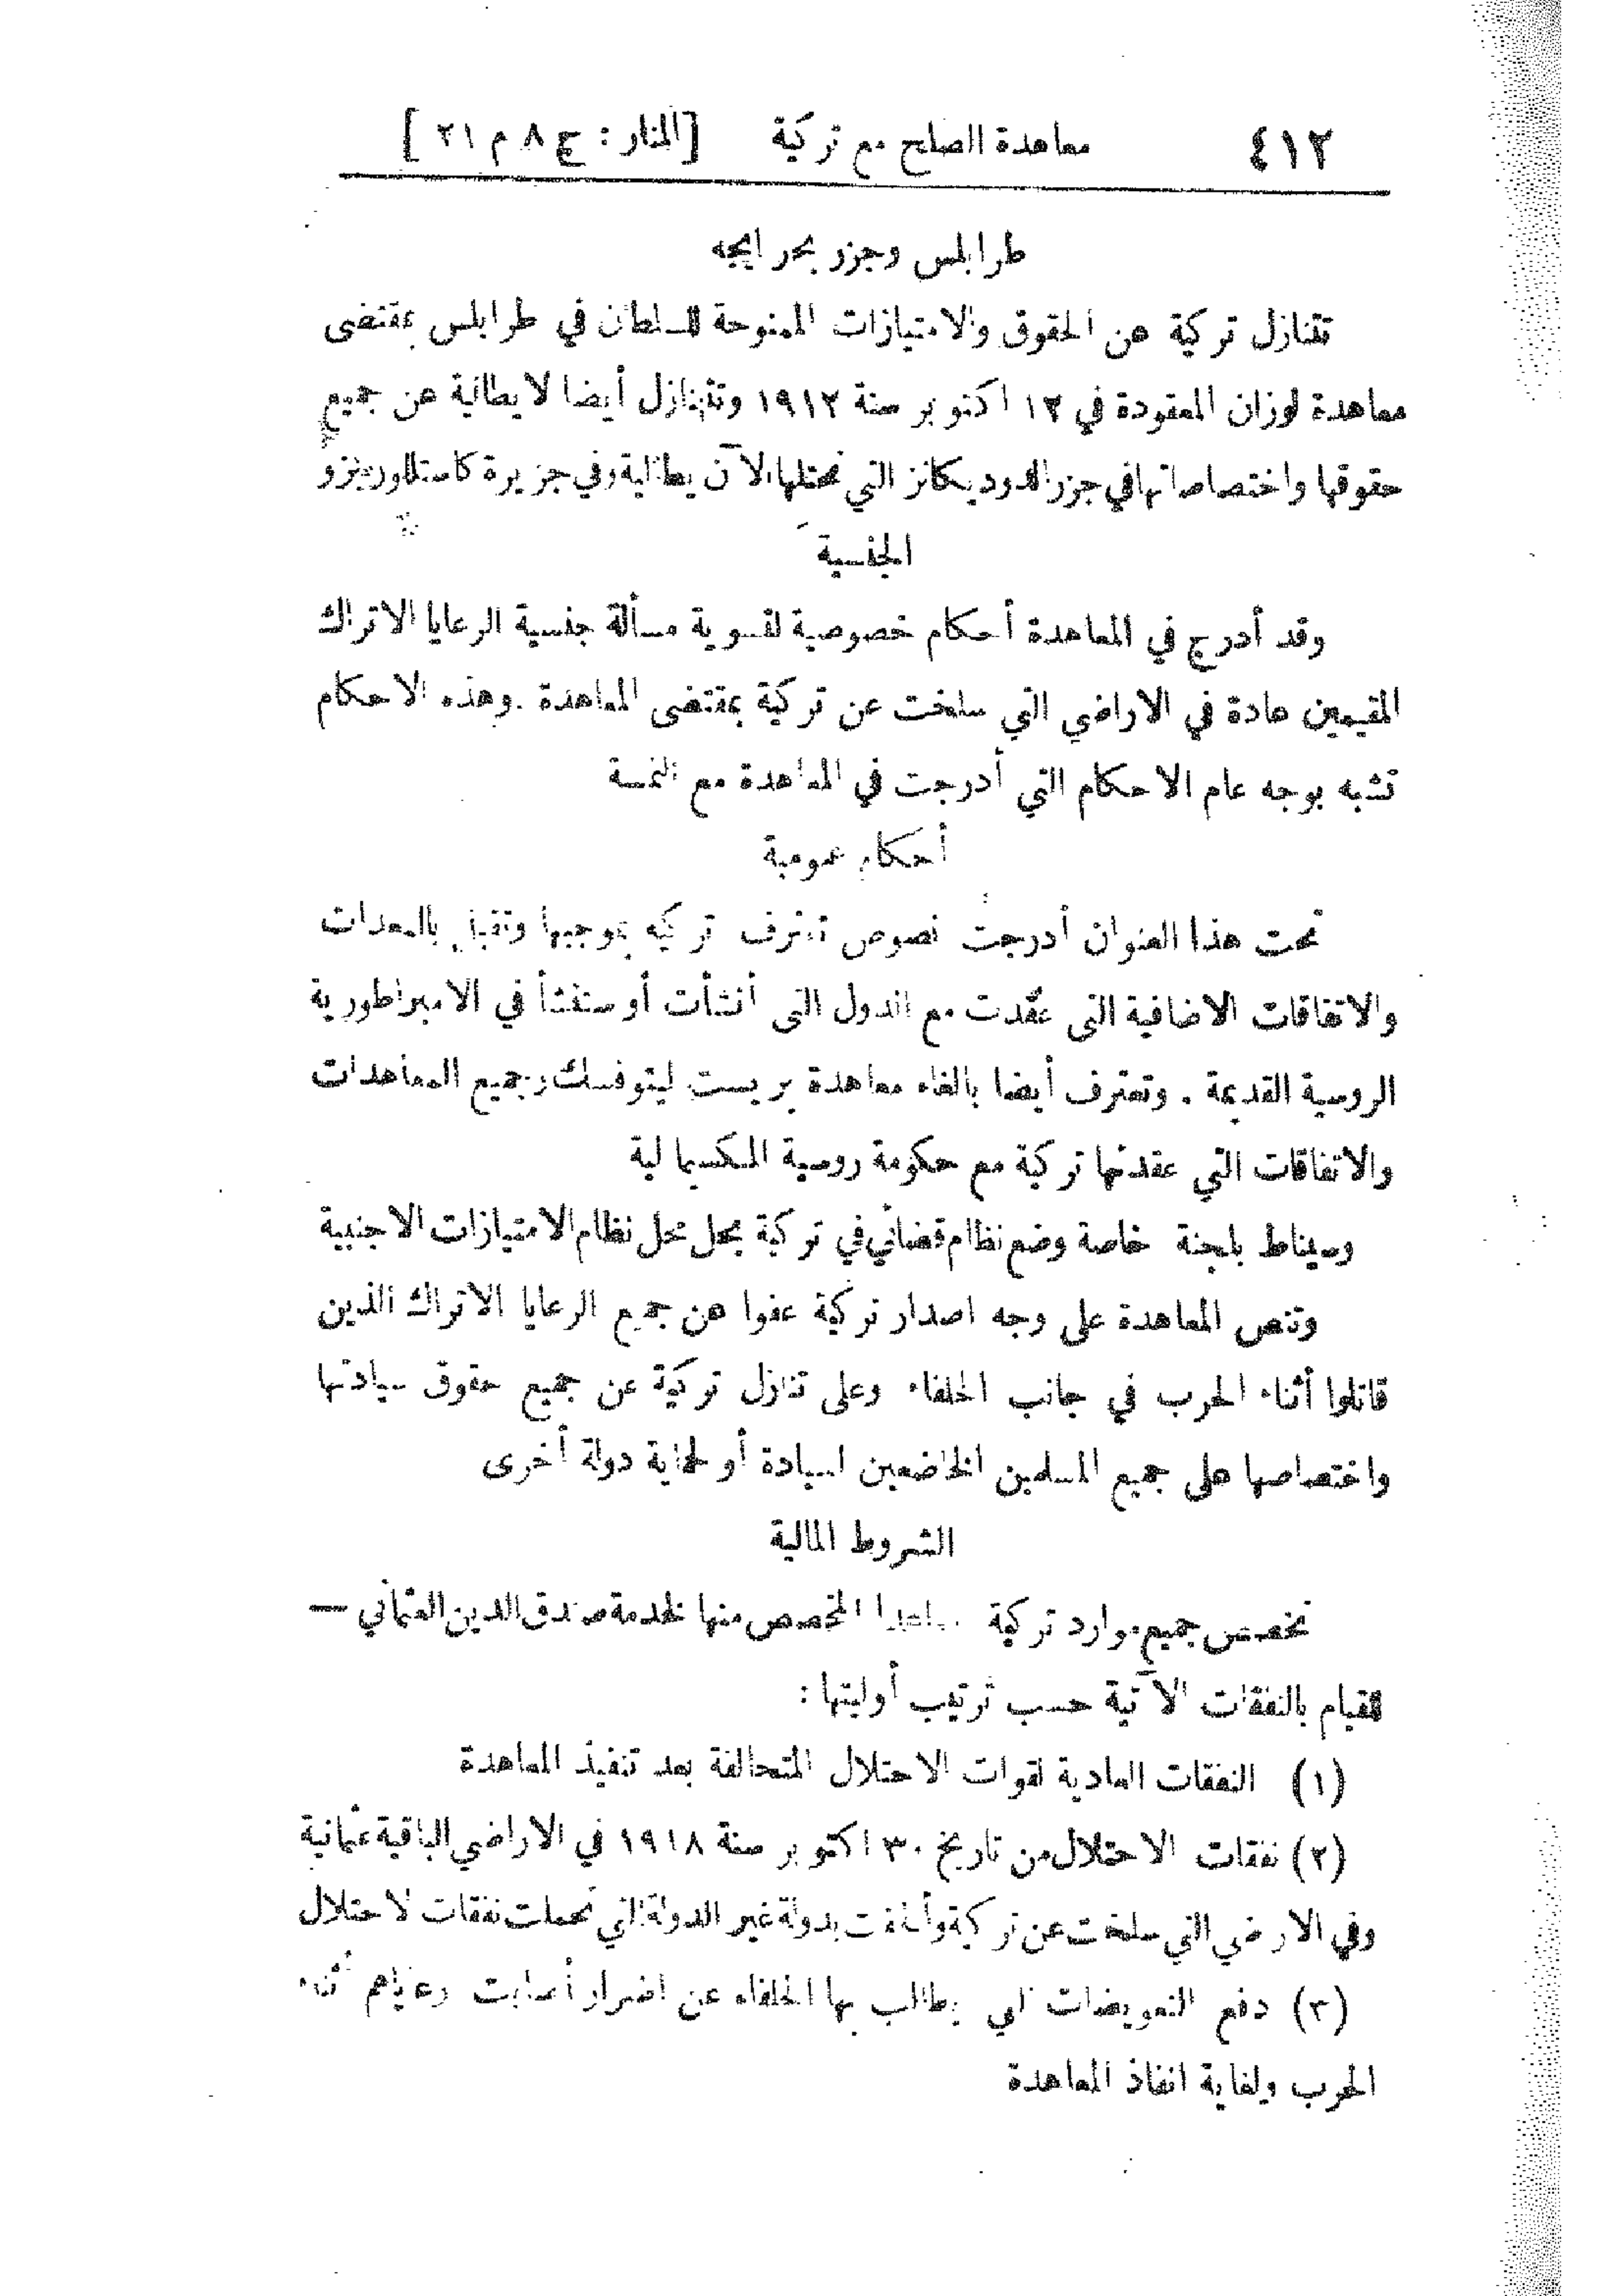 ٤١٢ معاهدة الصلح مع تركية [المنار : ج ٨ م ٢١ ]
طرابلس وجزر بحر ايجه
تتنازل تركية عن الحقوق والامتيازات الممنوحة للسلطان في طرابلس بمقتضى
معاهدة لوزان المعقودة في ١٢ اكتوبر سنة ١٩١٢ وتتنازل أيضا لايطالية عن جميع
حقوقها واختصاصاتها في جزر الدوديكانز التي تحتلها الآن يطالية وفي جزيرة كاستللوريزو
الجنسية
وقد أدرج في المعاهدة أحكام خصوصية لتسوية مسألة جنسية الرعايا الاتراك
المقيمين عادة في الاراضي التي سلخت عن تركية بمقتضى المعاهدة . وهذه الاحكام
تشبه بوجه عام الاحكام التي أدرجت في المعاهدة مع النمسة
أحكام عمومية
تحت هذا العنوان أدرجت نصوص تعترف تركيه بموجبها وتقبل بالمعدات
والاتفاقات الاضافية التى عقدت مع الدول التى أنشأت أو ستنشأ في الامبراطورية
الروسية القديمة . وتعترف أيضا بالغاء معاهدة بريست ليتوفسك وجميع المعاهدات
والاتفاقات التي عقدتها تركية مع حكومة روسية المكسيمالية
وسيناط بلجنة خاصة وضع نظام قضائي في تركية يحل محل نظام الامتيازات الاجنبية
وتنص المعاهدة على وجه اصدار تركية عفوا عن جميع الرعايا الاتراك الذين
قاتلوا أثناء الحرب في جانب الخلفاء وعلى تنازل تركية عن جميع حقوق سيادتها
واختصاصها على جميع المسلمين الخاضعين لسيادة أو لحماية دولة أخرى
الشروط المالية
تخصص جميع موارد تركية ماعدا المخصص منها لخدمة صندق الدين العثماني —
للقيام بالنفقات الآتية حسب ترتيب أوليتها :
(١) النفقات العادية لقوات الاحتلال المتحالفة بعد تنفيذ المعاهدة
(٢) نفقات الاحتلال من تاريخ ٣٠ اكتوبر سنة ١٩١٨ في الاراضي الباقية عثمانية
وفي الاراضي التي سلخت عن تركية وألحقت بدولة غير الدولة التي تحملت نفقات لاحتلال
(٣) دفع التعويضات التي يطالب بها الخلفاء عن اضرار أصابت رعاياهم أثناء
الحرب ولغاية انفاذ المعاهدة